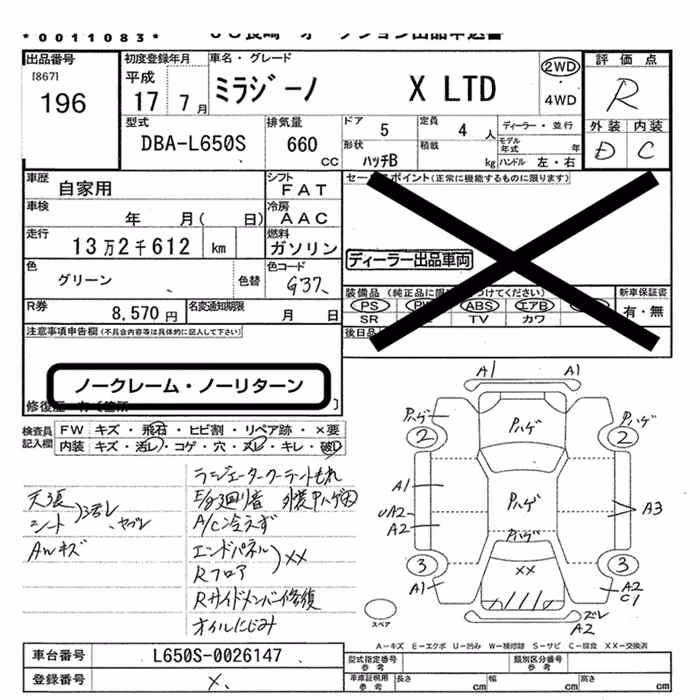 *0011083*
出品番号
[867]
196
初度登録年月
平成
17 7月
車名・グレード
ミラジーノ X LTD
2WD
・
4WD
評価点
R
外装 内装
D C
型式
DBA-L650S
排気量
660
CC
ドア 5
定員 4 人
ディーラー・並行
形状
ハッチB
積載
kg
モデル年式 年
ハンドル 左・右
車歴
自家用
シフト
FAT
車検
年 月( 日)
冷房
AAC
走行
13万2千612 km
燃料
ガソリン
色
グリーン
色替
色コード
G37
R券
8,570円
名変通知期限
月 日
セールスポイント(正常に機能するものに限ります)
ディーラー出品車両
装備品(純正品に限り 付けてください)
PS ABS エアB
SR TV カワ
新車保証書
有・無
後日品
注意事項申告欄(不具合内容等は具体的に記入して下さい)
ノークレーム・ノーリターン
修復歴
検査員記入欄
FW キズ・飛石・ヒビ割・リペア跡・×要
内装 キズ・汚レ・コゲ・穴・スレ・キレ・破レ
天張
シート
)汚レ、ヤブレ
AWキズ
ラジエータークーラントもれ
E/g廻り音 外装Pハゲ大
A/C冷えず
エンドパネル
Rフロア
)××
Rサイドメンバー修復
オイルにじみ
A1 A1
Pハゲ Pハゲ Pハゲ
2 2
A1
Pハゲ
UA2
A2
A3
Pハゲ
3 3
××
A1
A2
C1
ズレ
A2
スペア
A-キズ E-エクボ U-凹み W-補修跡 S-サビ C-腐食 XX-交換済
車台番号 L650S-0026147
登録番号 ×
型式指定番号
参考
類別区分番号
参考
車庫証明用
参考
長さ cm
幅 cm
高さ cm